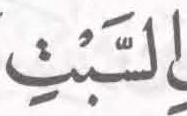 السَّبْتِ